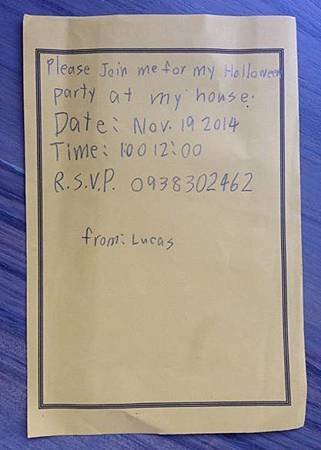 Please Join me for my Halloween
party at my house.
Date: Nov. 19 2014
Time: 100 12:00
R.S.V.P. 0938302462
from: Lucas